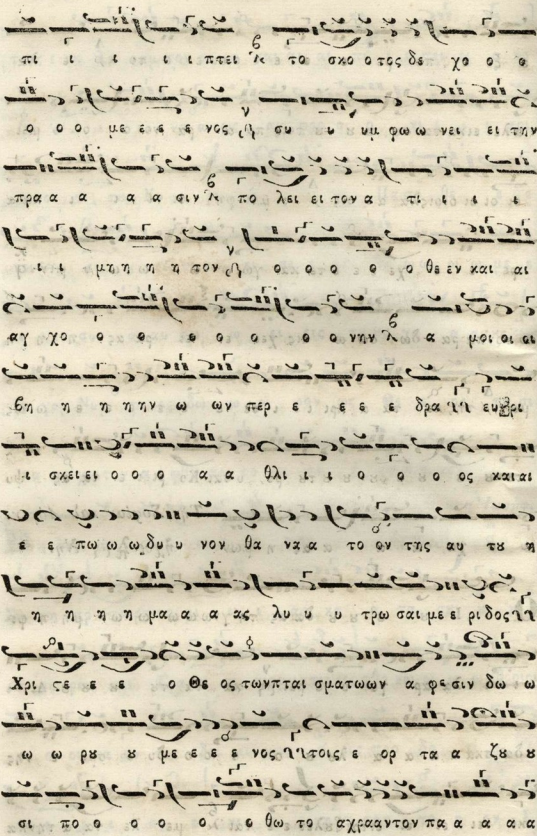 πι ι ι ι ι ι πτει το σκο ο τος δε χο ο ο
ο ο ο με ε ε ε νος συ υ υ υμ φω ω νει ει την
πρα α α α α α σιν πο λει ει τον α τι ι ι ι
ι ι μη η η η τον ο ο ο ο ο ο θε εν και αι
αγ χο ο ο ο ο ο ο ο ο ο νην α μοι οι οι
βη η η η ην ω ων περ ε ε ε ε δρα ευ ρι
ι σκει ει ο ο ο α α θλι ι ι ο ο ο ο ος και αι
ε ε πω ω ω δυ υ νον θα να α το ον της αυ του η
η η η η μα α α ας λυ υ υ τρω σαι με ε ρι δος
Χρι τε ε ε ο Θε ος των πται σμα τω ων α φε σιν δω ω
ω ω ρου ου με ε ε ε νος τοις ε ορ τα α ζου ου
σι πο ο ο ο ο ο θω το α χρα αν τον πα α α α α